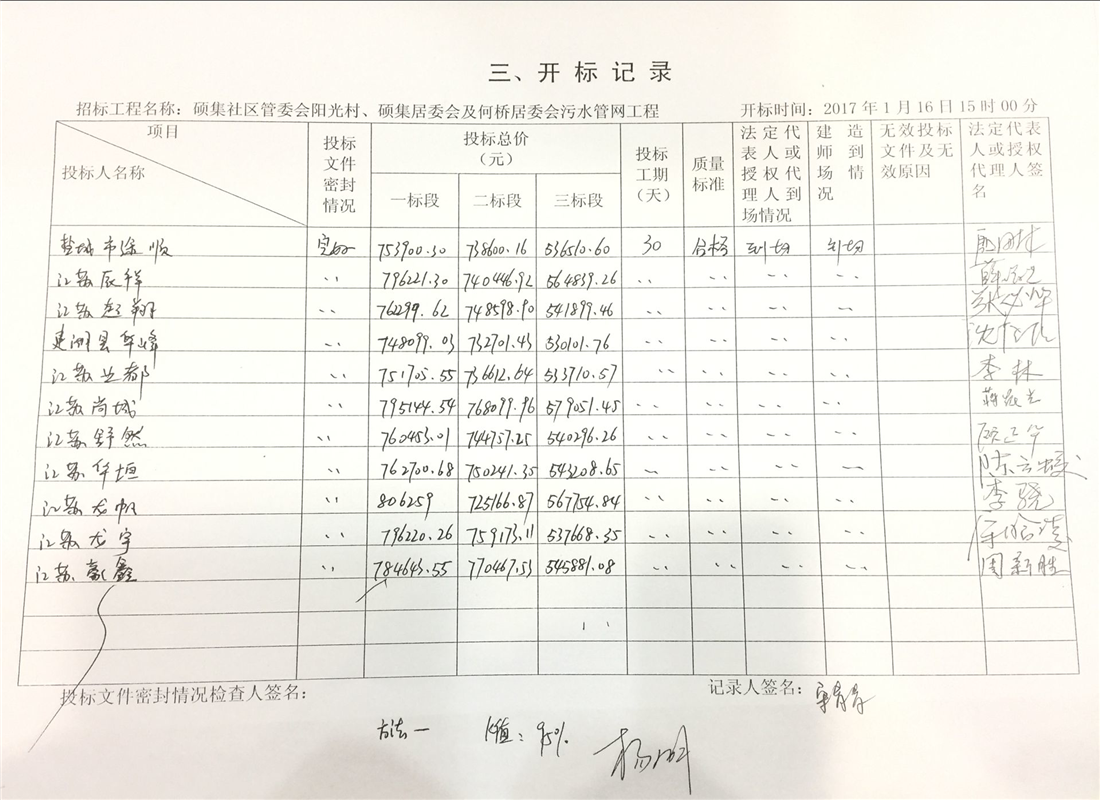 三、开标记录
招标工程名称：硕集社区管委会阳光村、硕集居委会及何桥居委会污水管网工程 开标时间：2017年1月16日15时00分
项目
投标人名称
投标文件密封情况
投标总价（元）
一标段 二标段 三标段
投标工期（天）
质量标准
法定代表人或授权代理人到场情况
建造师到场情况
无效投标文件及无效原因
法定代表人或授权代理人签名
盐城市途顺 完好 753900.30 738600.16 536510.60 30 合格 到场 到场
江苏辰祥 〃 796221.30 740446.92 564839.26 〃 〃 〃 〃
江苏超翔 〃 762299.62 748598.90 541899.46 〃 〃 〃 〃
建湖县华峰 〃 748099.03 732701.43 530101.76 〃 〃 〃 〃
江苏 〃 751705.55 736612.64 533710.57 〃 〃 〃 〃 李林
江苏尚城 〃 795144.54 768099.96 579051.45 〃 〃 〃 〃
江苏舒然 〃 760453.01 744757.25 540296.26 〃 〃 〃 〃
江苏华垣 〃 762700.68 750241.35 543208.65 〃 〃 〃 〃
江苏龙帆 〃 806259 725166.87 567754.84 〃 〃 〃 〃 李骁
江苏龙宇 〃 796220.26 759173.11 537668.35 〃 〃 〃 〃
江苏豪鑫 〃 784643.55 770467.53 545881.08 〃 〃 〃 〃 周新胜
投标文件密封情况检查人签名： 记录人签名：
方法一 K值：95% 杨明